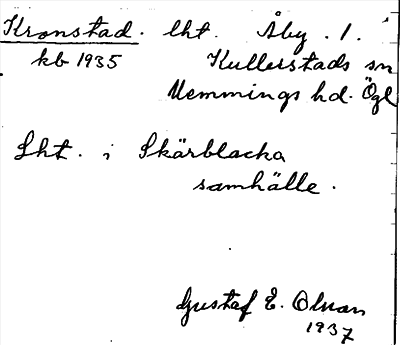 Kronstad. lht. Åby. 1.
kb 1935 Kullerstads sn
Memmings hd. Ögl
Lht. i Skärblacka
samhälle.
Gustaf E. Olsson
1937